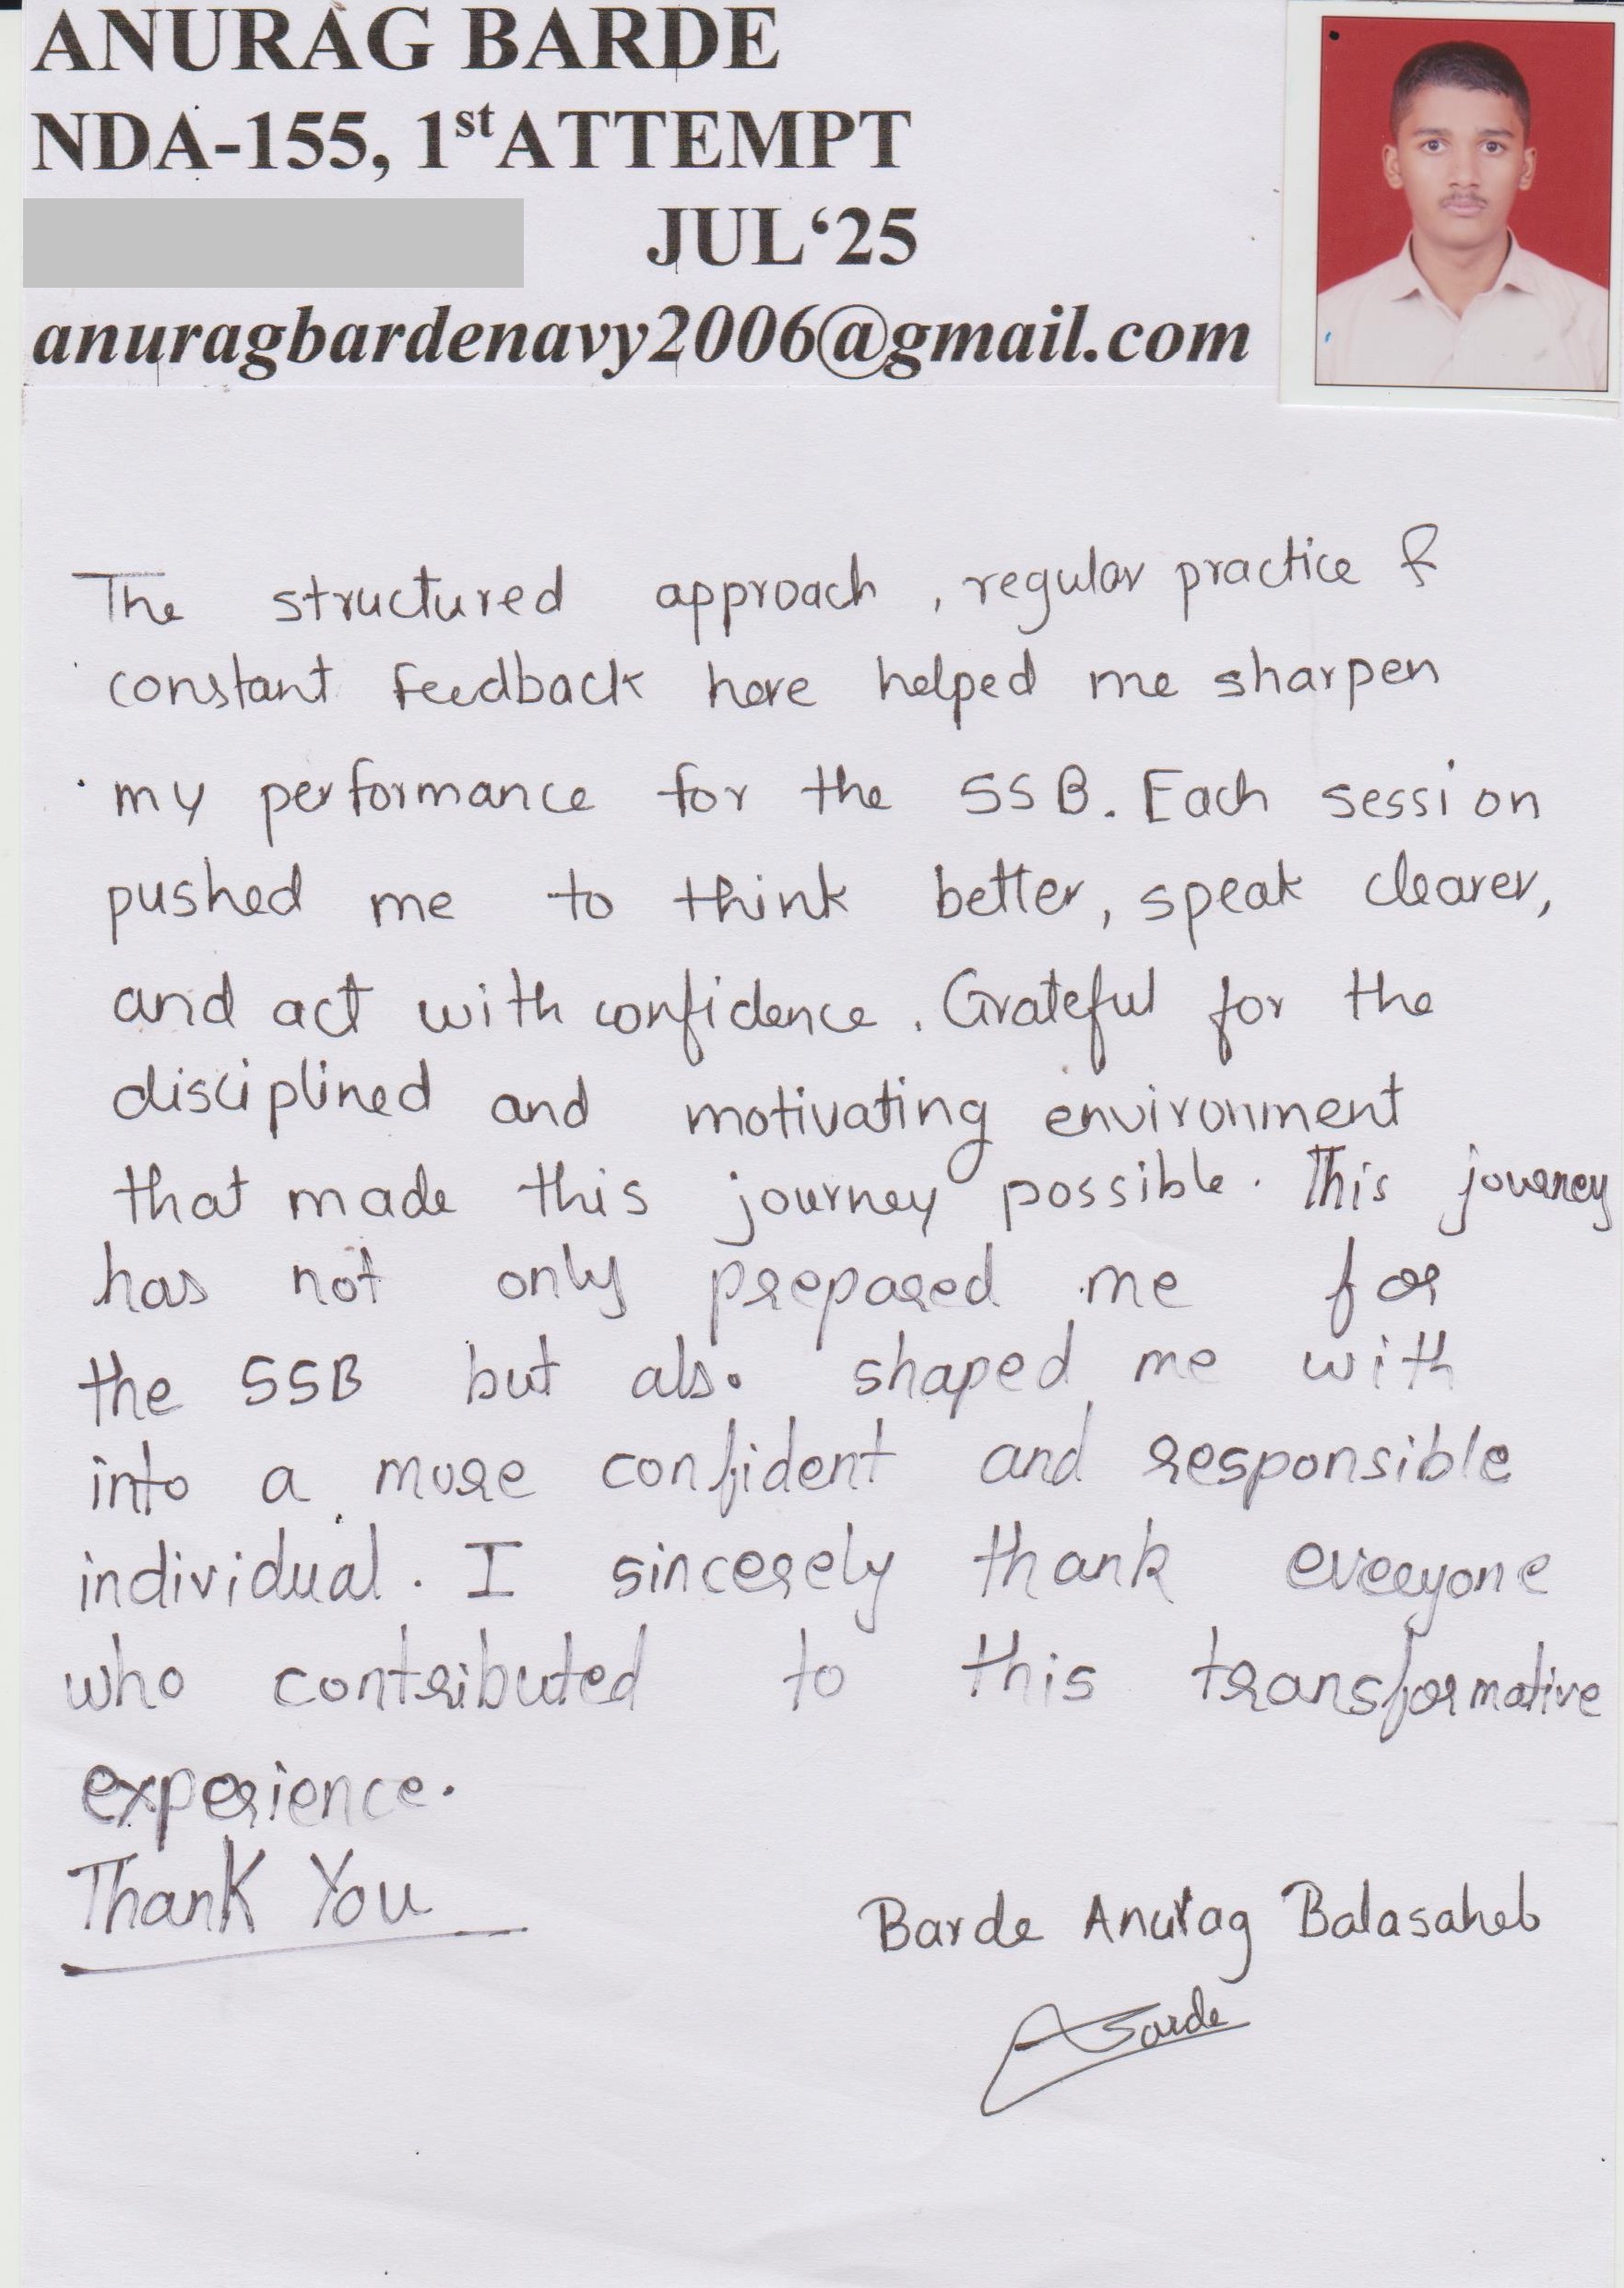 ANURAG BARDE
NDA-155, 1st ATTEMPT
JUL‘25
anuragbardenavy2006@gmail.com
The structured approach, regular practice &
constant feedback here helped me sharpen
my performance for the SSB. Each session
pushed me to think better, speak clearer,
and act with confidence. Grateful for the
disciplined and motivating environment
that made this journey possible. This journey
has not only prepared me for
the SSB but also shaped me with
into a more confident and responsible
individual. I sincerely thank everyone
who contributed to this transformative
experience.
Thank You
Barde Anurag Balasaheb
ABarde